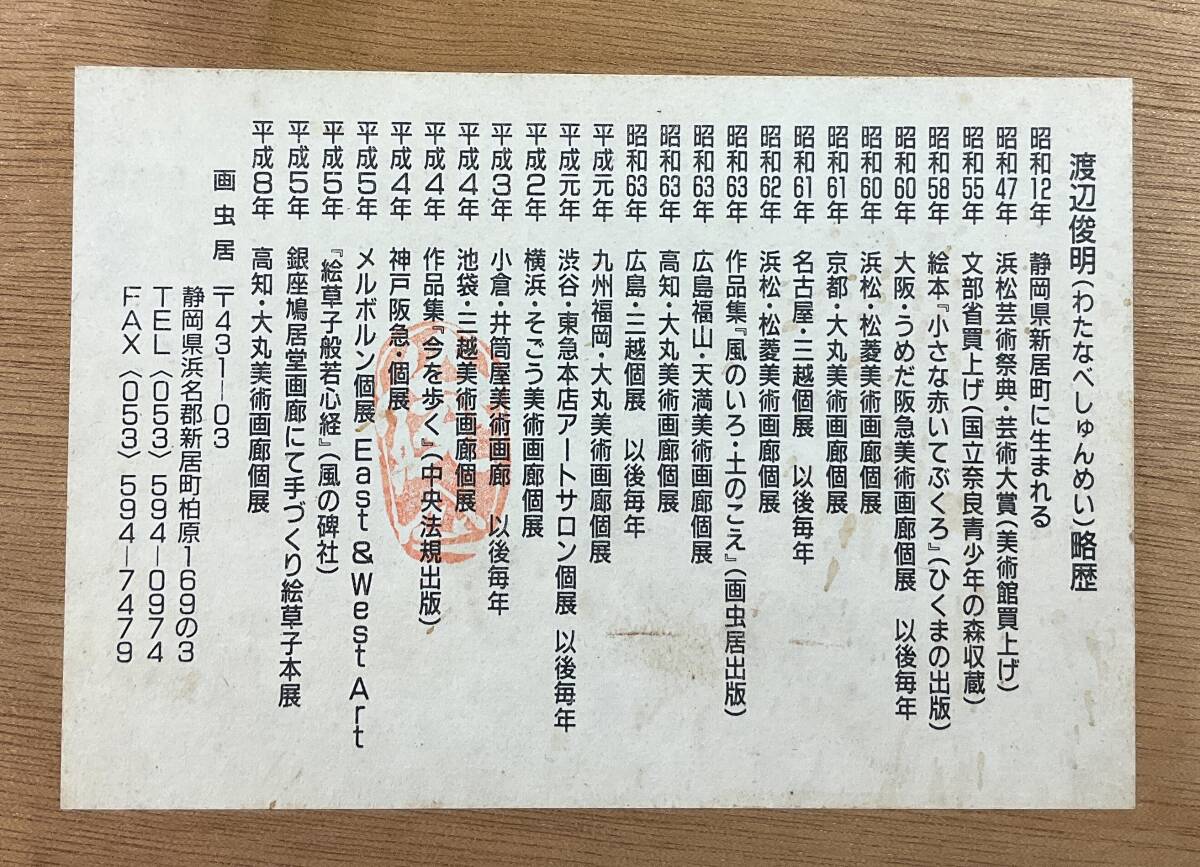 渡辺俊明（わたなべしゅんめい）略歴
昭和12年　静岡県新居町に生まれる
昭和47年　浜松芸術祭典・芸術大賞（美術館買上げ）
昭和55年　文部省買上げ（国立奈良青少年の森収蔵）
昭和58年　絵本『小さな赤いてぶくろ』（ひくまの出版）
昭和60年　大阪・うめだ阪急美術画廊個展　以後毎年
昭和60年　浜松・松菱美術画廊個展
昭和61年　京都・大丸美術画廊個展
昭和61年　名古屋・三越個展　以後毎年
昭和62年　浜松・松菱美術画廊個展
昭和63年　作品集『風のいろ・土のこえ』（画虫居出版）
昭和63年　広島福山・天満美術画廊個展
昭和63年　高知・大丸美術画廊個展
昭和63年　広島・三越個展　以後毎年
平成元年　九州福岡・大丸美術画廊個展
平成元年　渋谷・東急本店アートサロン個展　以後毎年
平成2年　横浜・そごう美術画廊個展
平成3年　小倉・井筒屋美術画廊　以後毎年
平成4年　池袋・三越美術画廊個展
平成4年　作品集『今を歩く』（中央法規出版）
平成4年　神戸阪急・個展
平成5年　メルボルン個展 East & West Art
平成5年　『絵草子般若心経』（風の碑社）
平成5年　銀座鳩居堂画廊にて手づくり絵草子本展
平成8年　高知・大丸美術画廊個展
画虫居　〒431-03
静岡県浜名郡新居町柏原169の3
TEL〈053〉594-0974
FAX〈053〉594-7479